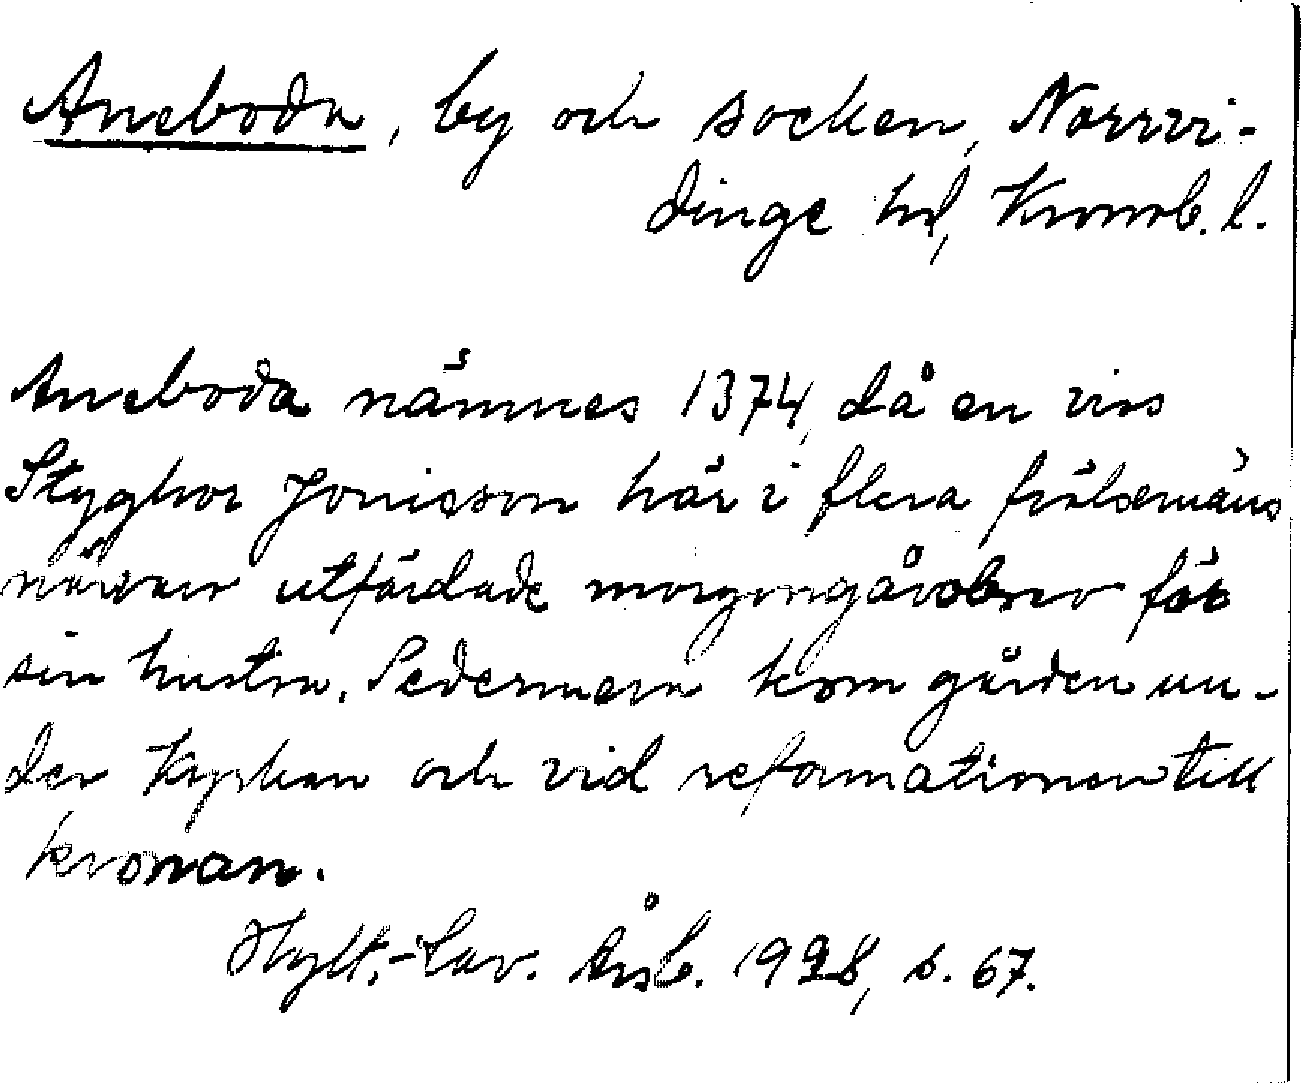 Aneboda, by och socken, Norrvi-
dinge hd, Kronob. l.
Aneboda nämnes 1374, då en viss
Styghor Jonisson här i flera frälsemäns
närvaro utfärdade morgongåvobrev för
sin hustru. Sedermera kom gården un-
der kyrkan och vid reformationen till
kronan.
Hylt.-Cav. Årsb. 1928, s. 67.